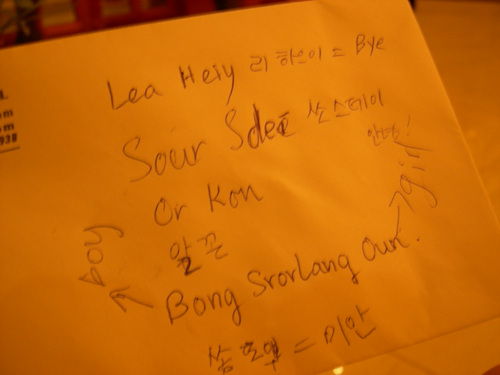 Lea Heiy 리 하으이 = Bye
Sour Sdei 쏘 스데이
안녕!
Or Kon
알끈
Bong Srorlang Oun. → girl
↑ boy
쏨 = 미안
938